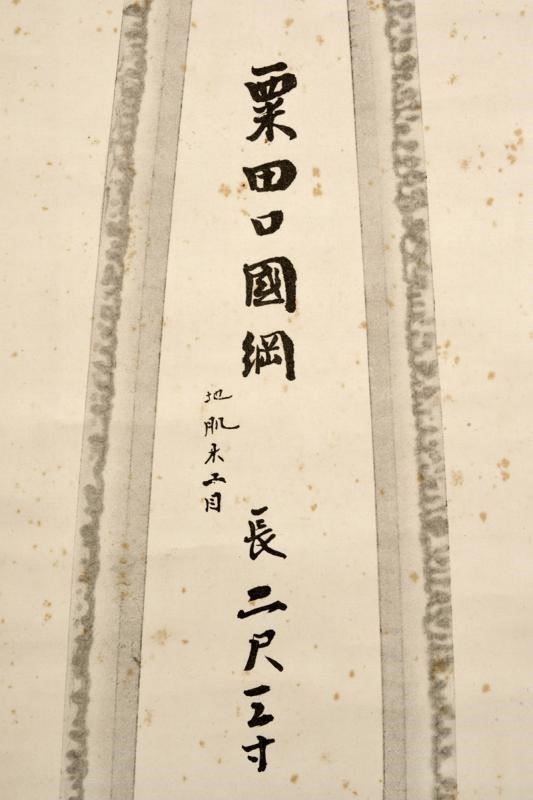 粟田口國綱
地肌杢目
長二尺三寸